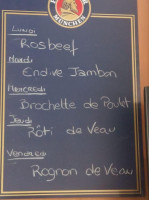 MÜNCHEN
Lundi
Rosbeef
Mardi
Endive Jambon
Mercredi
Brochette de Poulet
Jeudi
Rôti de Veau
Vendredi
Rognon de Veau